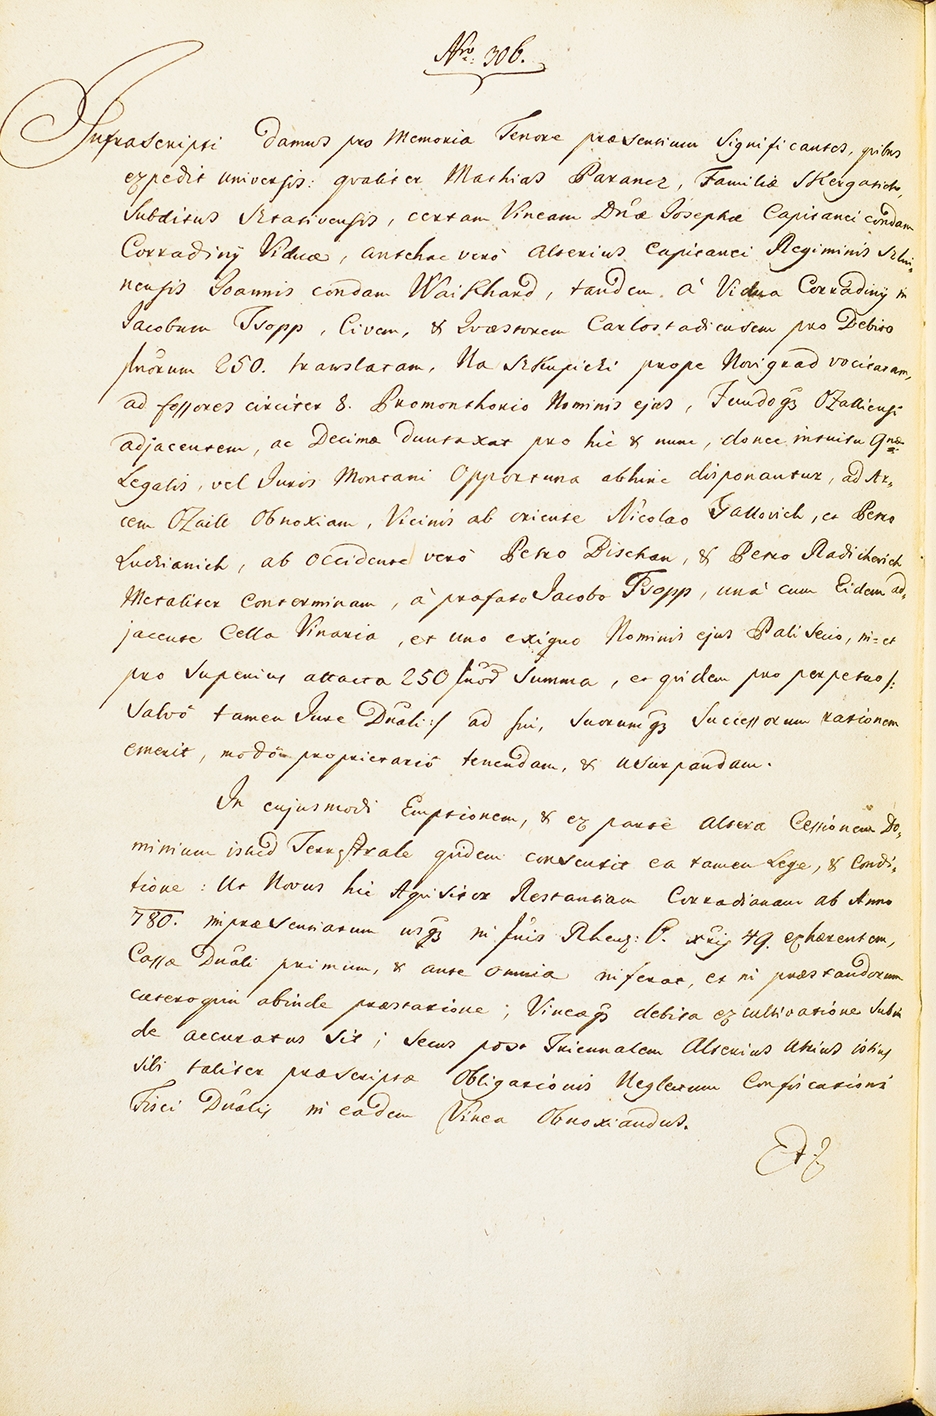 Nro: 306.
Infrascripti Damus pro Memoria Tenore præsentium Significantes, quibus
expedit universis: qualiter Mathias Paranez, Familiæ Skergatich,
Subditus Sztativensis, certam Vineam Dnæ Josephæ Capitanei condam
Corradiny Viduæ, antehac verò alterius Capitanei Regiminis Szlui-
nensis Joannis condam Waikhard, tandem à Vidua Corradiny in
Jacobum Tsopp, Civem, & Quæstorem Carlostadiensem pro Debito
fnorum 250. translatam, Na Szkupichi prope Novigrad vocitatam,
ad fossores circiter 8. Promonthorio Nominis ejus, Fundoq3 Ozalliensi
adjacentem, ac Decimæ duntaxat pro hic & nunc, donec intuitu 9næ
Legalis, vel Juris Montani Opportuna abhinc disponantur, ad Ar-
cem Ozaill Obnoxiam, Vicinis ab oriente Nicolao Fallovich, et Petro
Ludianich, ab occidente verò Petro Bischan, & Petro Radichevich
Metaliter Conterminam, à præfato Jacobo Tsopp, unà cum Eidem ad-
jacente Cella Vinaria, et uno exiguo Nominis ejus Paliseio, in- et
pro superius attacta 250 fnor Summa, et quidem pro perpetuo /:
Salvô tamen Jure Dnali :/ ad sui, suorumq3 Successorum rationem
emerit, modô proprietariô tenendam, & usurpandam.
In cujusmodi Emptionem, & ex parte altera Cessionem Do-
minium isthid Terrestrale quidem consensit ea tamen Lege, & Condi-
tione: Ut Novus hic Aquisitor Restantiam Corradianam ab Anno
780. inpræsentiarum usq3 in fnis Rhen: 6. xris 49. exhærentem,
Cassæ Dnali primum, & ante omnia inferat, et in præstandorum
cæteroquin abinde præstatione; Vineaq3 debita excultivatione Subin
de accuratus sit; secus post Triennalem Alterius Utrius istius
sibi taliter præscriptæ Obligationis Neglectum Confiscationi
Fisci Dnalis in eadem Vinea Obnoxiandus.